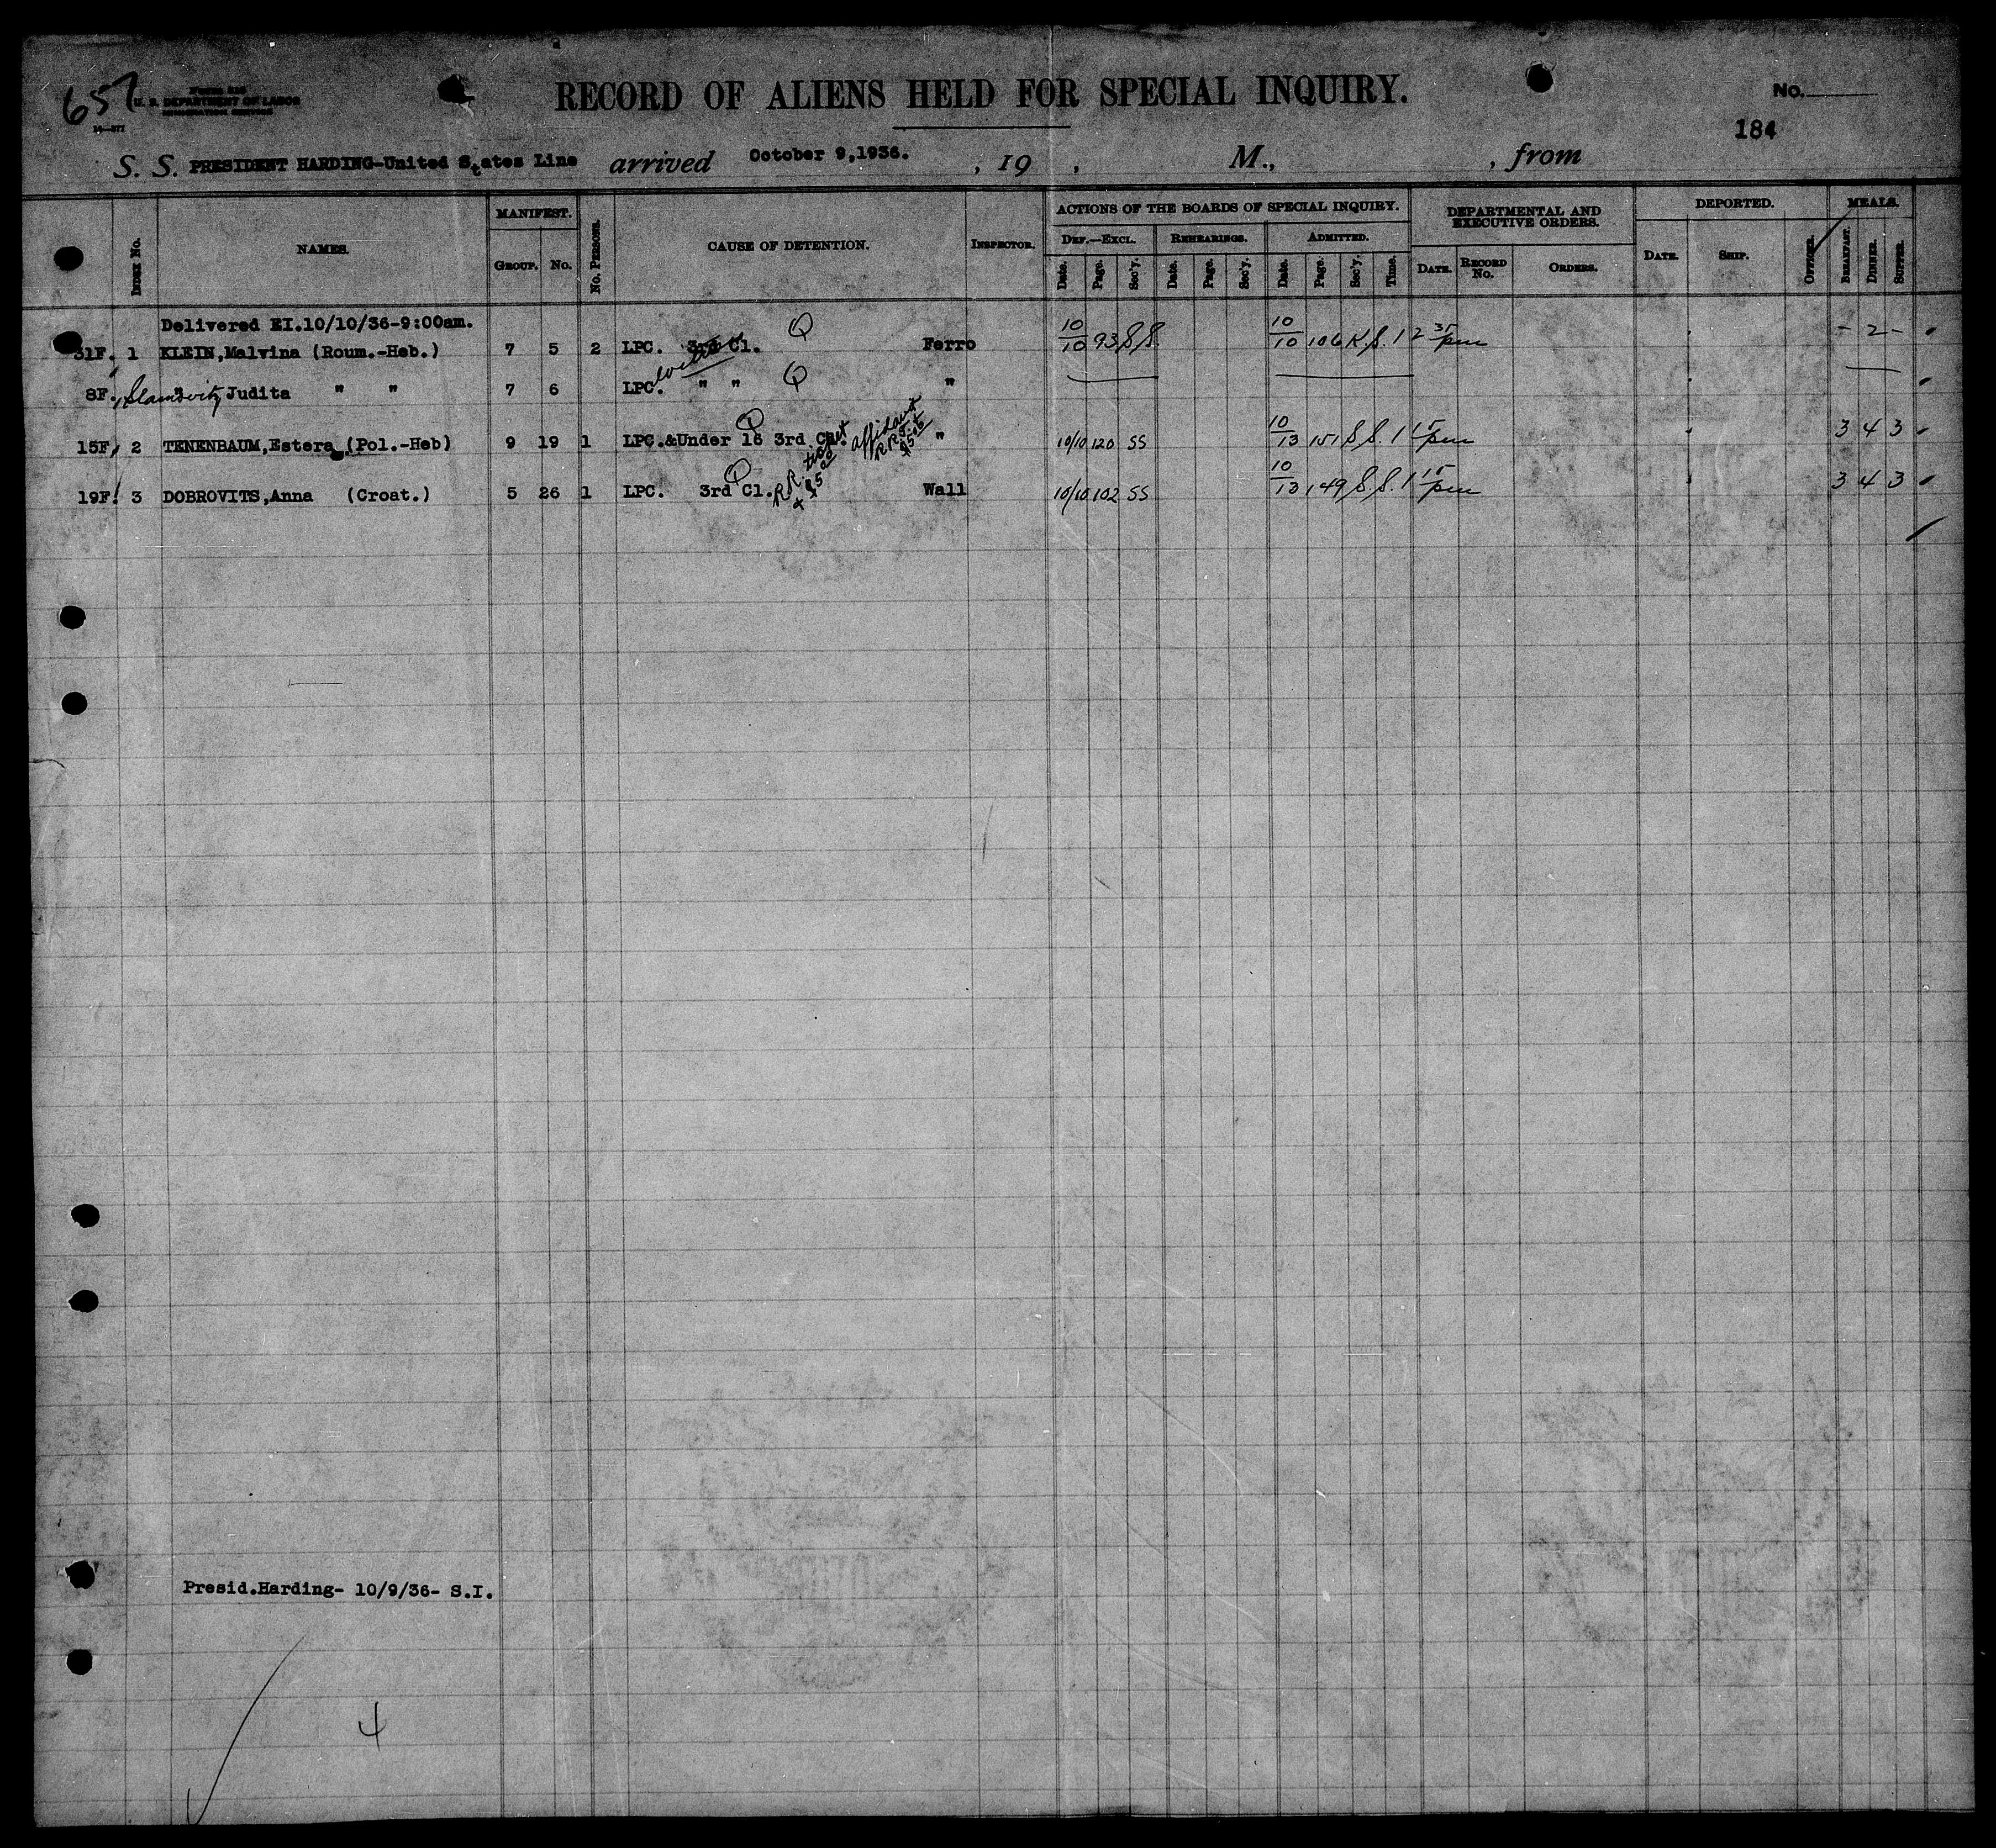 657
U. S. DEPARTMENT OF LABOR
IMMIGRATION SERVICE
RECORD OF ALIENS HELD FOR SPECIAL INQUIRY.
No.
184
S. S. PRESIDENT HARDING-United States Line arrived October 9,1936. , 19 , M., , from
INDEX No. NAMES. MANIFEST. GROUP. No. No. PERSONS. CAUSE OF DETENTION. INSPECTOR. ACTIONS OF THE BOARDS OF SPECIAL INQUIRY. DEF.—EXCL. Date. Page. Sec'y. REHEARINGS. Date. Page. Sec'y. ADMITTED. Date. Page. Sec'y. Time. DEPARTMENTAL AND EXECUTIVE ORDERS. DATE. RECORD No. ORDERS. DEPORTED. DATE. SHIP. OFFICER. MEALS. BREAKFAST. DINNER. SUPPER.
Delivered EI.10/10/36-9:00am.
31F. 1 KLEIN,Malvina (Roum.-Heb.) 7 5 2 LPC. 3rd Cl. Q Ferro 10/10 93 SS. 10/10 106 K.S. 1 2 35 pm - 2 -
8F. " Judita " " 7 6 LPC. " " Q "
15F, 2 TENENBAUM,Estera (Pol.-Heb) 9 19 1 LPC.&Under 16 3rd Cl. Q affidavit "  10/10 120 SS 10/13 151 SS. 1 15 pm 3 4 3
19F. 3 DOBROVITS,Anna (Croat.) 5 26 1 LPC. 3rd Cl. Q Wall 10/10 102 SS 10/13 149 SS. 1 15 pm 3 4 3
Presid.Harding- 10/9/36- S.I.
4